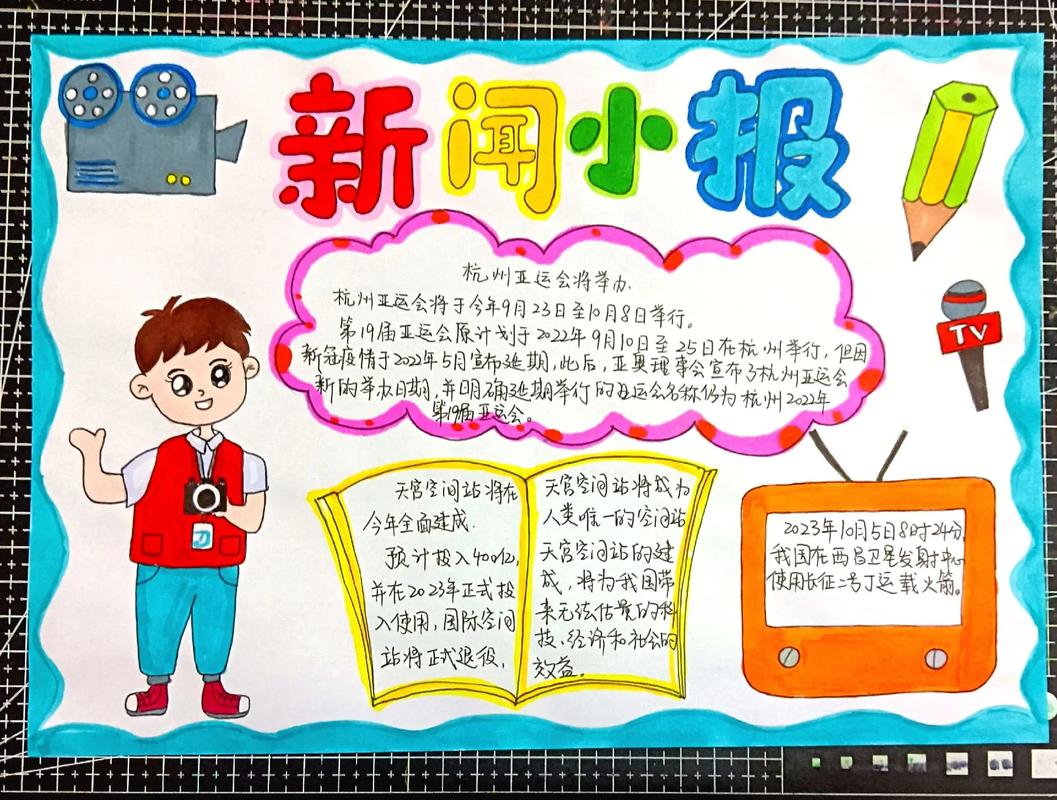 新闻小报
杭州亚运会将举办
杭州亚运会将于今年9月23日至10月8日举行。
第19届亚运会原计划于2022年9月10日至25日在杭州举行,但因
新冠疫情于2022年5月宣布延期,此后,亚奥理事会宣布了杭州亚运会
新的举办日期,并明确延期举行的亚运会名称仍为杭州2022年
第19届亚运会。
天宫空间站将在
今年全面建成.
预计投入400亿,
并在2023年正式投
入使用,国际空间
站将正式退役,
天宫空间站将成为
人类唯一的空间站
天宫空间站的建
成,将为我国带
来无法估量的科
技、经济和社会的
效益。
TV
2023年10月5日8时24分,
我国在西昌卫星发射中心
使用长征二号丁运载火箭。